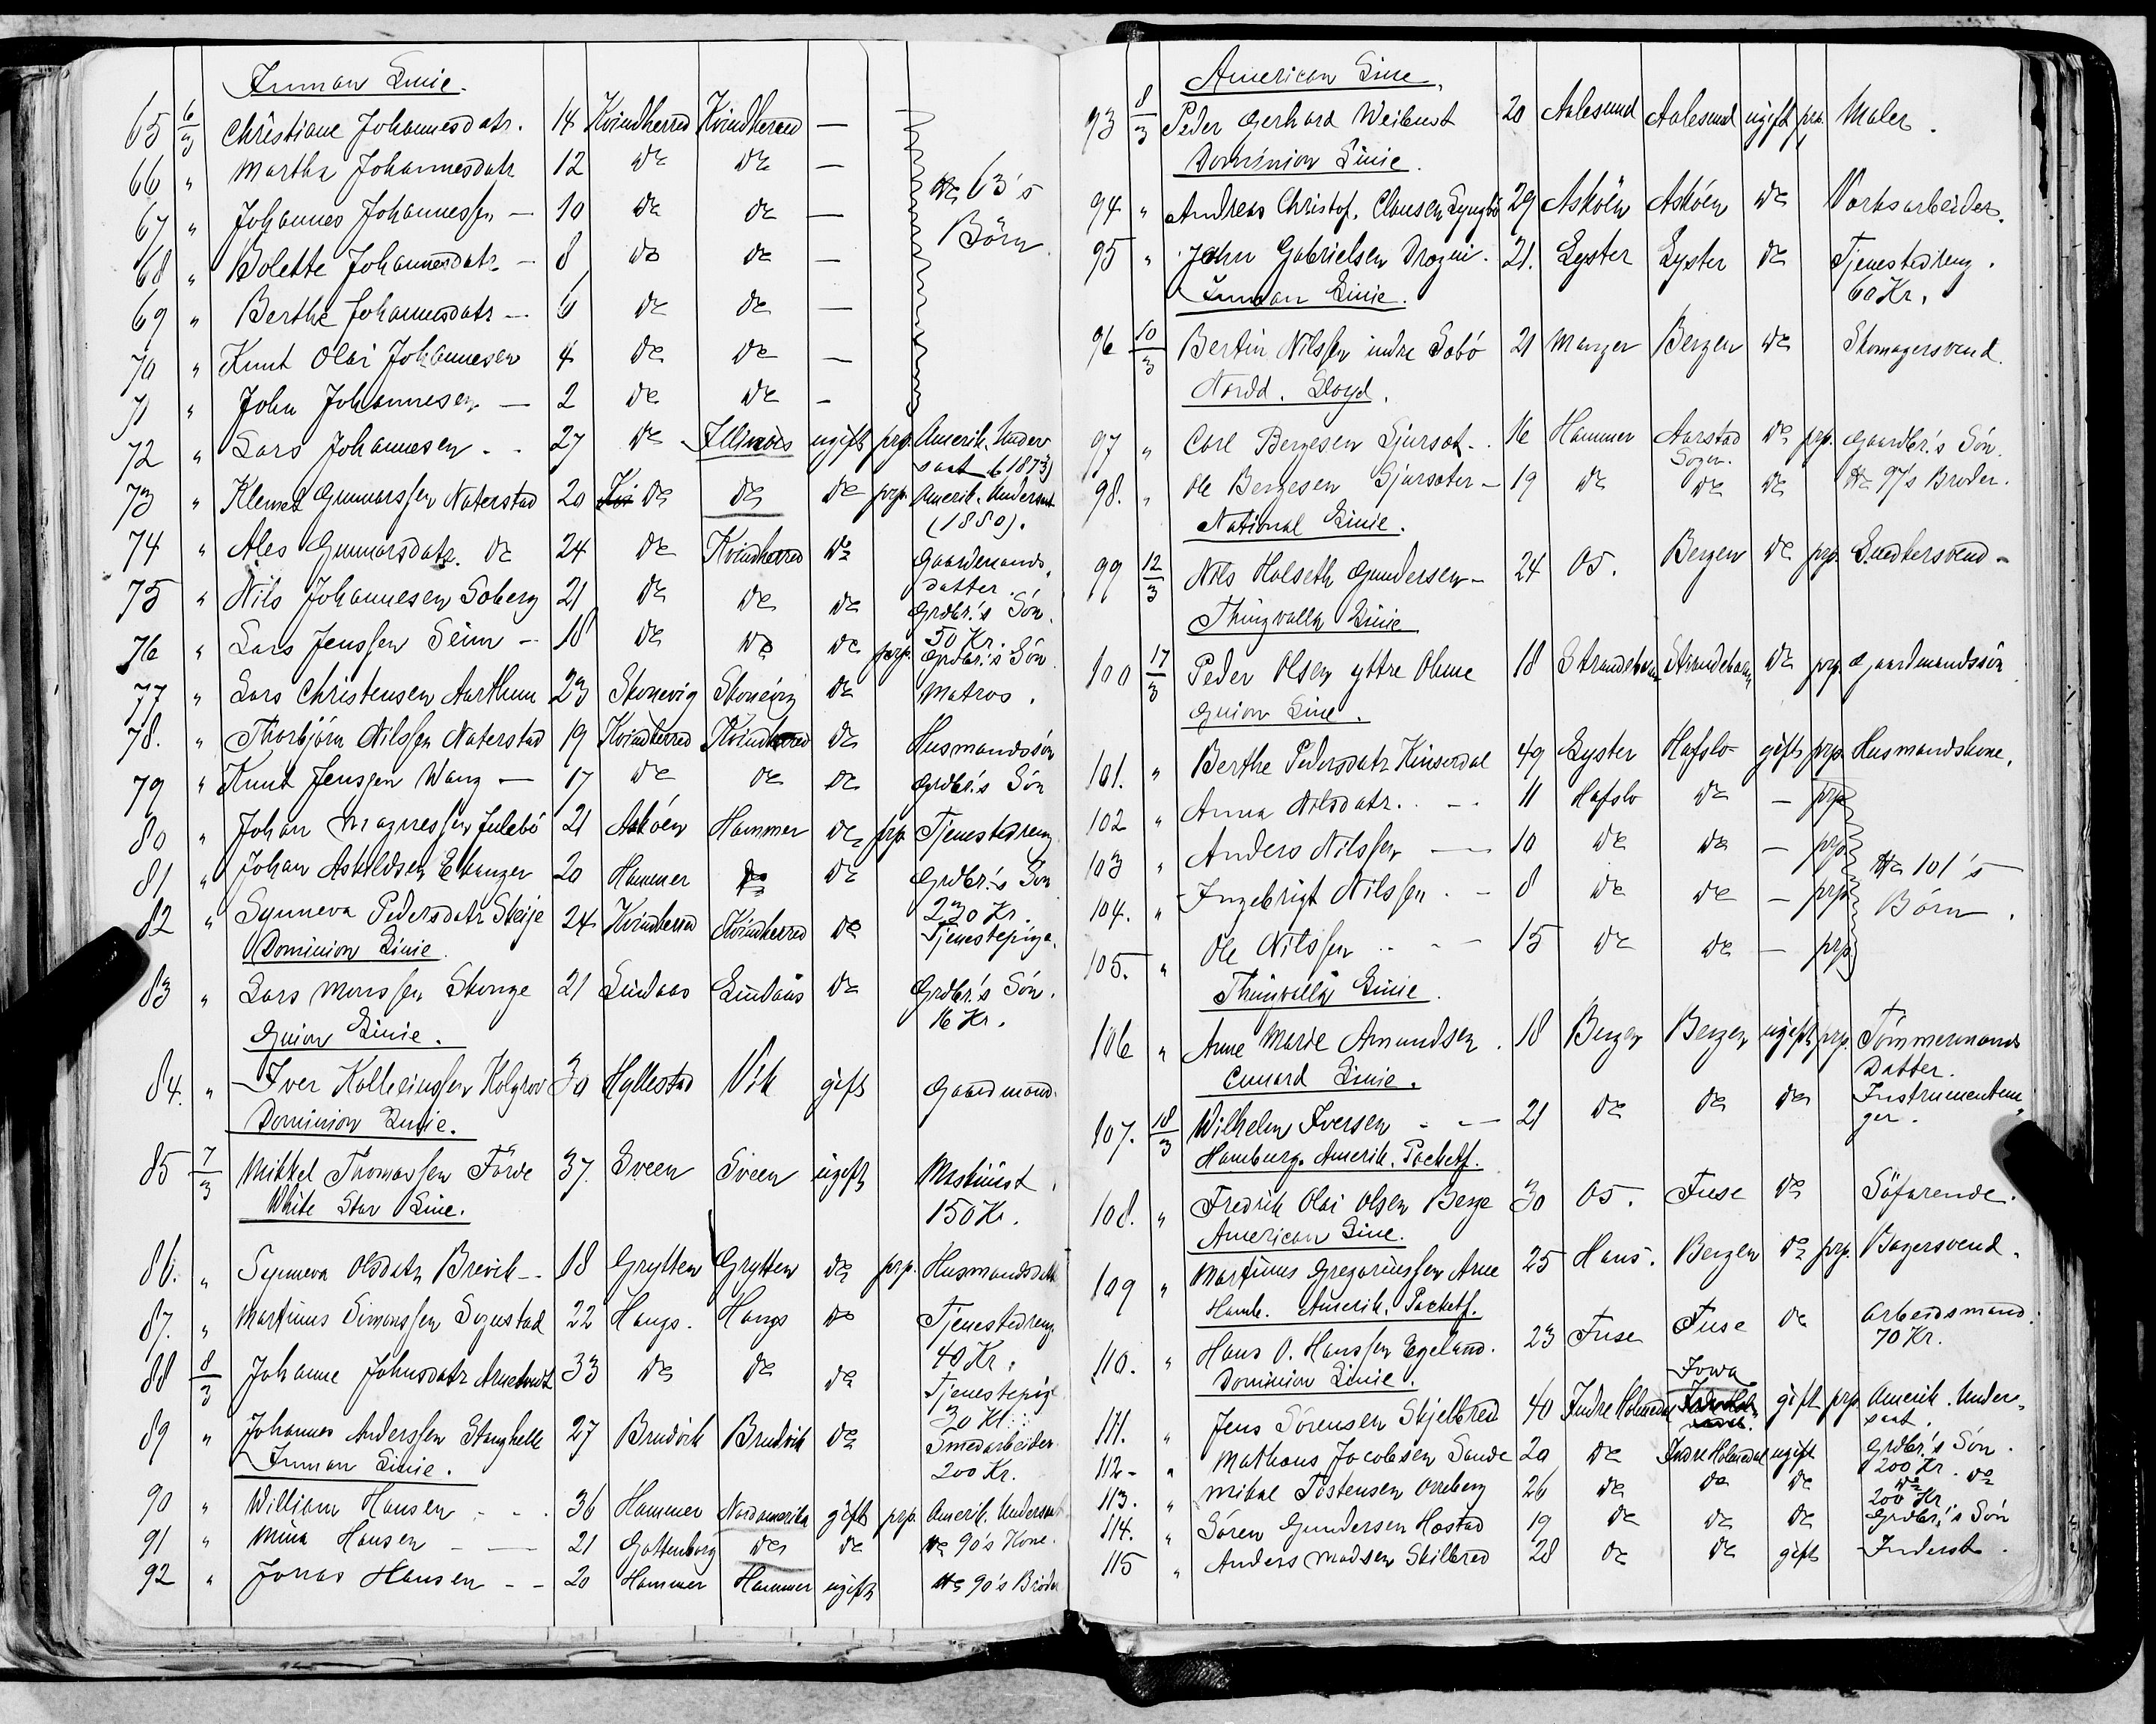 Inman Linie.
65 6/3 Christiane Johannesdatr. 14 Kvindherred Kvindherred —
66 " Martha Johannesdatr 12 do do —
67 " Johannes Johannessen — 10 do do — No 63's
68 " Bolette Johannesdatr — 8 do do — Börn
69 " Berthe Johannesdatr — 6 do do —
70 " Knut Olai Johannesen 4 do do —
71 " John Johannesen — 2 do do —
72 " Lars Johannesen - - 27 do Illinois ugift prp. Amerik. Under
saat (1873)
73 " Klemet Gunnarssen Naterstad 20 do do do prp. Amerik. Undersaat
(1880).
74 " Ales Gunnarsdatr. do 24 do Kvindherred do Gaardmands
datter.
75 " Nils Johannesen Soberg 21 do do do Grdbr.'s Sön.
50 Kr.
76 " Lars Jenssen Seim — 18 do do do prp. Grdbr.'s Sön.
77 " Lars Christensen Aarthun 23 Skonevig Skonevig do Matros.
78. " Thorbjörn Nilssen Naterstad 19 Kvindherred Kvindherred do Husmandssön
79 " Knut Jenssen Wang — 17 do do do Grdbr.'s Sön
80 " Johan Magnessen Julebö 21 Asköen Hammer do prp. Tjenestedreng
81 " Johan Askildsen Ekanger 20 Hammer do do Grdbr.'s Sön
230 Kr.
82 " Synneva Pedersdatr Skeije 24 Kvindherred Kvindherred do Tjenestepige.
Dominion Linie.
83 " Lars Monssen Skonge 21 Lindaas Lindaas do Grdbr.'s Sön.
16 Kr.
Guion Linie.
84. " Iver Kolbeinssen Kolgrov 30 Hyllestad Vik gift Gaardmand.
Dominion Linie.
85 7/3 Mikkel Thomassen Förde 37. Sveen Sveen ugift Maskinist.
150 Kr.
White Star Line.
86. " Synneva Olsdatr Brevik - - 18 Grytten Grytten do prp. Husmandsdatt
87. " Martinus Simonssen Sognstad 22 Haugs. Haugs do Tjenestedreng
40 Kr.
88 8/3 Johanne Johnsdatr 33 do do do Tjenestepige
30 Kr.
89 " Johannes Anderssen Stanghelle 27 Bruvik Bruvik do Smedarbeider
200 Kr.
Inman Linie.
90 " William Hansen - - - 36 Hammer Nordamerika gift prp. Amerik. Undersaat
91 " Mina Hansen — — 21 Gottenborg do do No 90's Kone.
92 " Jonas Hansen - - 20 Hammer Hammer ugift No 90's Broder
American Line.
93 8/3 Peder Gerhard Weibust 20 Aalesund Aalesund ugift prp. Maler.
Dominion Linie.
94 " Andreas Christof. Clausen Lyngbö 29 Asköen Asköen do Værksarbeider.
95 " John Gabrielsen Drægni. 21. Lyster Lyster do Tjenestedreng.
60 Kr.
Inman Linie.
96 10/3 Bertin Nilssen indre Sæbö 21 Manger Bergen do Skomagersvend
Nordd. Lloyd.
97 " Carl Bergesen Gjursæt - . 16 Hammer Aarstad do prp. Gaardbr.'s Sön.
Sogn.
98. " Ole Bergesen Gjursæter — 19 do do do No 97's Broder.
National Linie.
99 12/3 Nils Holseth Gundersen — 24 Os. Bergen do prp. Snedkersvend —
Thingvalla Linie
100 17/3 Peder Olsen yttre Olme 18 Strandebarm Strandebarm do prp. Gaardmandssön
Guion Line.
101. " Berthe Pedersdatr Kinserdal 49 Lyster Hafslo gift prp. Husmandskone.
102 " Anna Nilsdatr. - — . 11 Hafslo do — prp.
103 " Anders Nilssen — — 10 do do — prp. No 101's
104. " Ingebrigt Nilssen. — 8 do do — prp. Börn.
105. " Ole Nilssen - - — 15 do do — prp.
Thingvalla Linie.
106 " Anne Marie Amundsen. 18 Bergen Bergen ugift prp. Tömmermands
Datter.
Cunard Linie.
107. 18/3 Wilhelm Iversen - — 21 do do do Instrumentma
ger.
Hamburg. Amerik. Packetf.
108. " Fredrik Olai Olsen Berge 30 Os. Fuse do Söfarende.
American Line.
109 " Martinus Gregoriussen Arne 25 Haus. Bergen do prp. Bagersvend.
Hamb. Amerik. Packetf.
110. " Hans O. Hanssen Egeland. 23 Fuse Fuse do Arbeidsmand.
70 Kr.
Dominion Linie.
Iowa
111. " Jens Sörensen Skjelbred 40 Indre Holmedal gift prp Amerik. Under-
saat.
112 - " Mathæus Jacobsen Sande 20 do Indre Holmedal ugift Grdbr.'s Sön.
200 Kr.
113. " Mikal Tostensen Orreberg 26 do do do do do
200 Kr
114. " Sören Gundersen Hæstad 19 do do do Grdbr.'s Sön
115 " Anders Madsen Skilbred 28 do do gift Inderst.